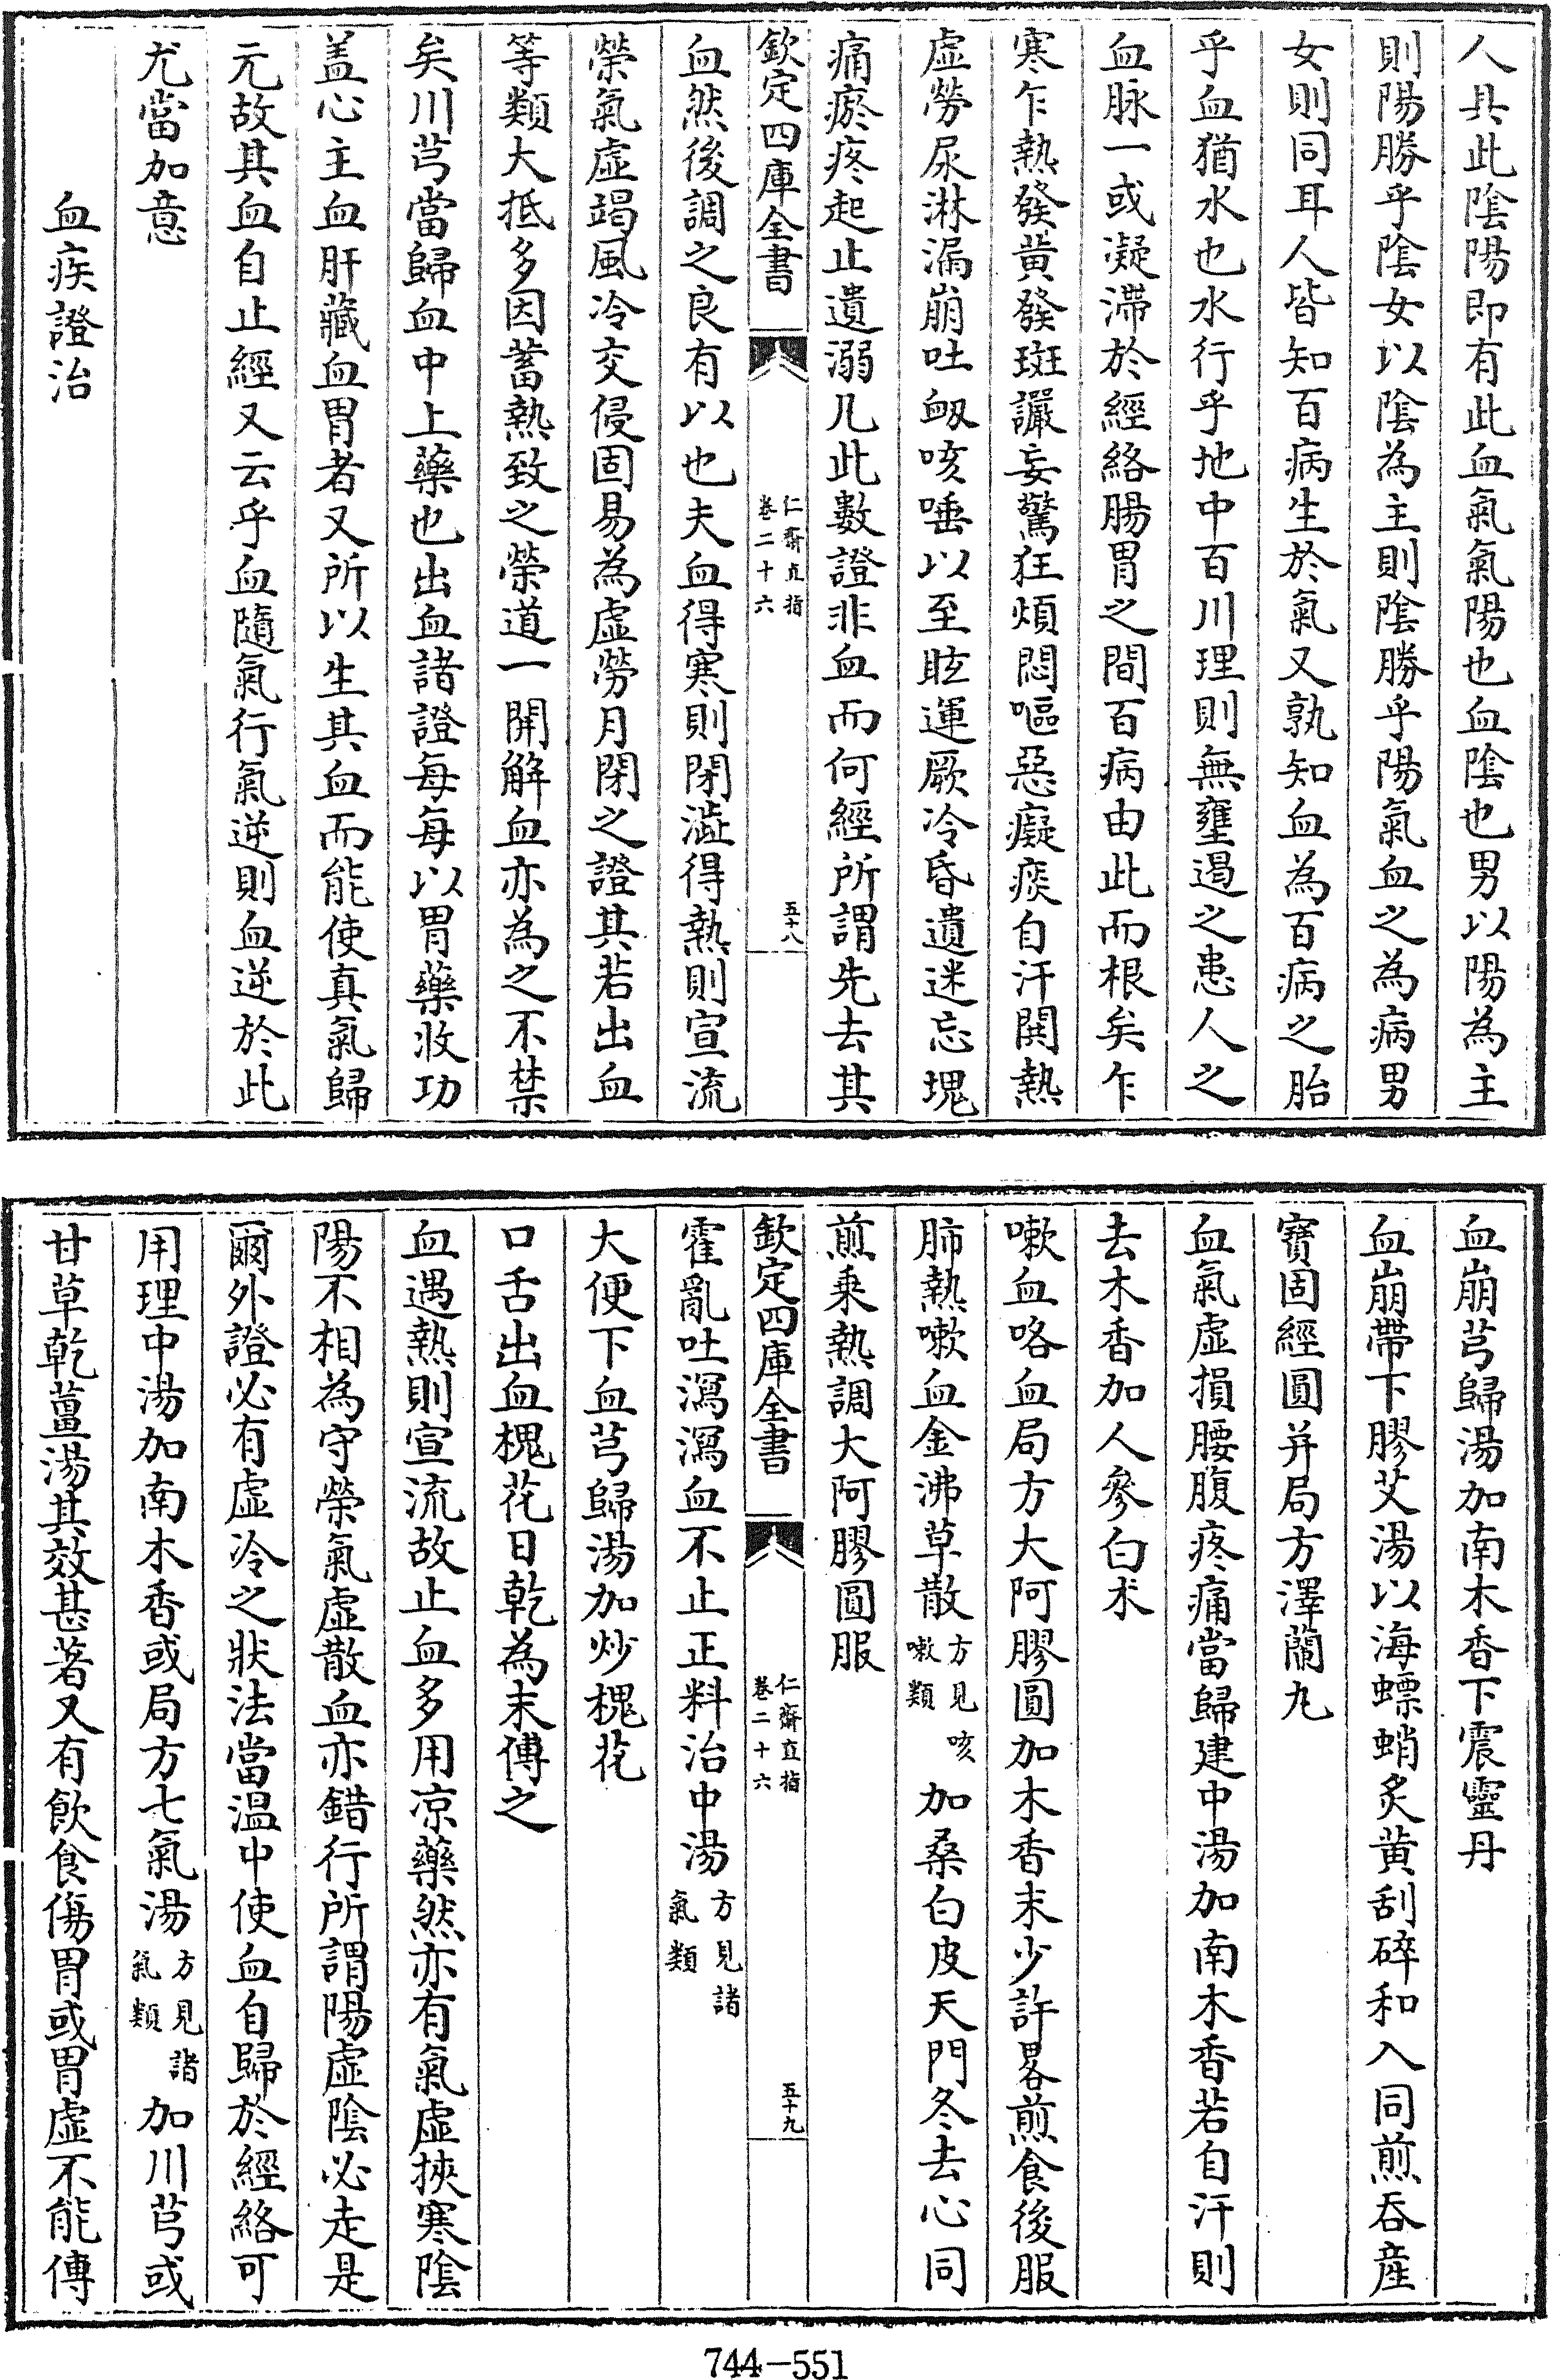 人具此陰陽即有此血氣氣陽也血陰也男以陽為主
則陽勝乎陰女以陰為主則陰勝乎陽氣血之為病男
女則同耳人皆知百病生於氣又孰知血為百病之胎
乎血猶水也水行乎地中百川理則無壅遏之患人之
血脉一或凝滯於經絡腸胃之間百病由此而根矣乍
寒乍熱發黄發斑讝妄驚狂煩悶嘔惡癡痰自汗関熱
虛勞尿淋漏崩吐衂咳唾以至眩運厥冷昏遺迷忘塊
痛瘀疼起止遺溺凡此數證非血而何經所謂先去其
欽定四庫全書
仁齋直指
卷二十六
五十八
血然後調之良有以也夫血得寒則閉澁得熱則宣流
榮氣虛竭風冷交侵固易為虛勞月閉之證其若出血
等類大抵多因蓄熱致之榮道一開解血亦為之不禁
矣川芎當歸血中上藥也出血諸證每每以胃藥收功
盖心主血肝藏血胃者又所以生其血而能使真氣歸
元故其血自止經又云乎血隨氣行氣逆則血逆於此
尤當加意
血疾證治
血崩芎歸湯加南木香下震靈丹
血崩帶下膠艾湯以海螵蛸炙黄刮碎和入同煎吞産
寶固經圓并局方澤蘭丸
血氣虛損腰腹疼痛當歸建中湯加南木香若自汗則
去木香加人參白朮
嗽血咯血局方大阿膠圓加木香末少許畧煎食後服
肺熱嗽血金沸草散方見咳嗽類加桑白皮天門冬去心同
煎乗熱調大阿膠圓服
欽定四庫全書
仁齋直指
卷二十六
五十九
霍亂吐瀉瀉血不止正料治中湯方見諸氣類
大便下血芎歸湯加炒槐花
口舌出血槐花日乾為末傅之
血遇熱則宣流故止血多用凉藥然亦有氣虛挾寒陰
陽不相為守榮氣虛散血亦錯行所謂陽虛陰必走是
爾外證必有虛冷之狀法當温中使血自歸於經絡可
用理中湯加南木香或局方七氣湯方見諸氣類加川芎或
甘草乾薑湯其效甚著又有飲食傷胃或胃虛不能傳
744-551